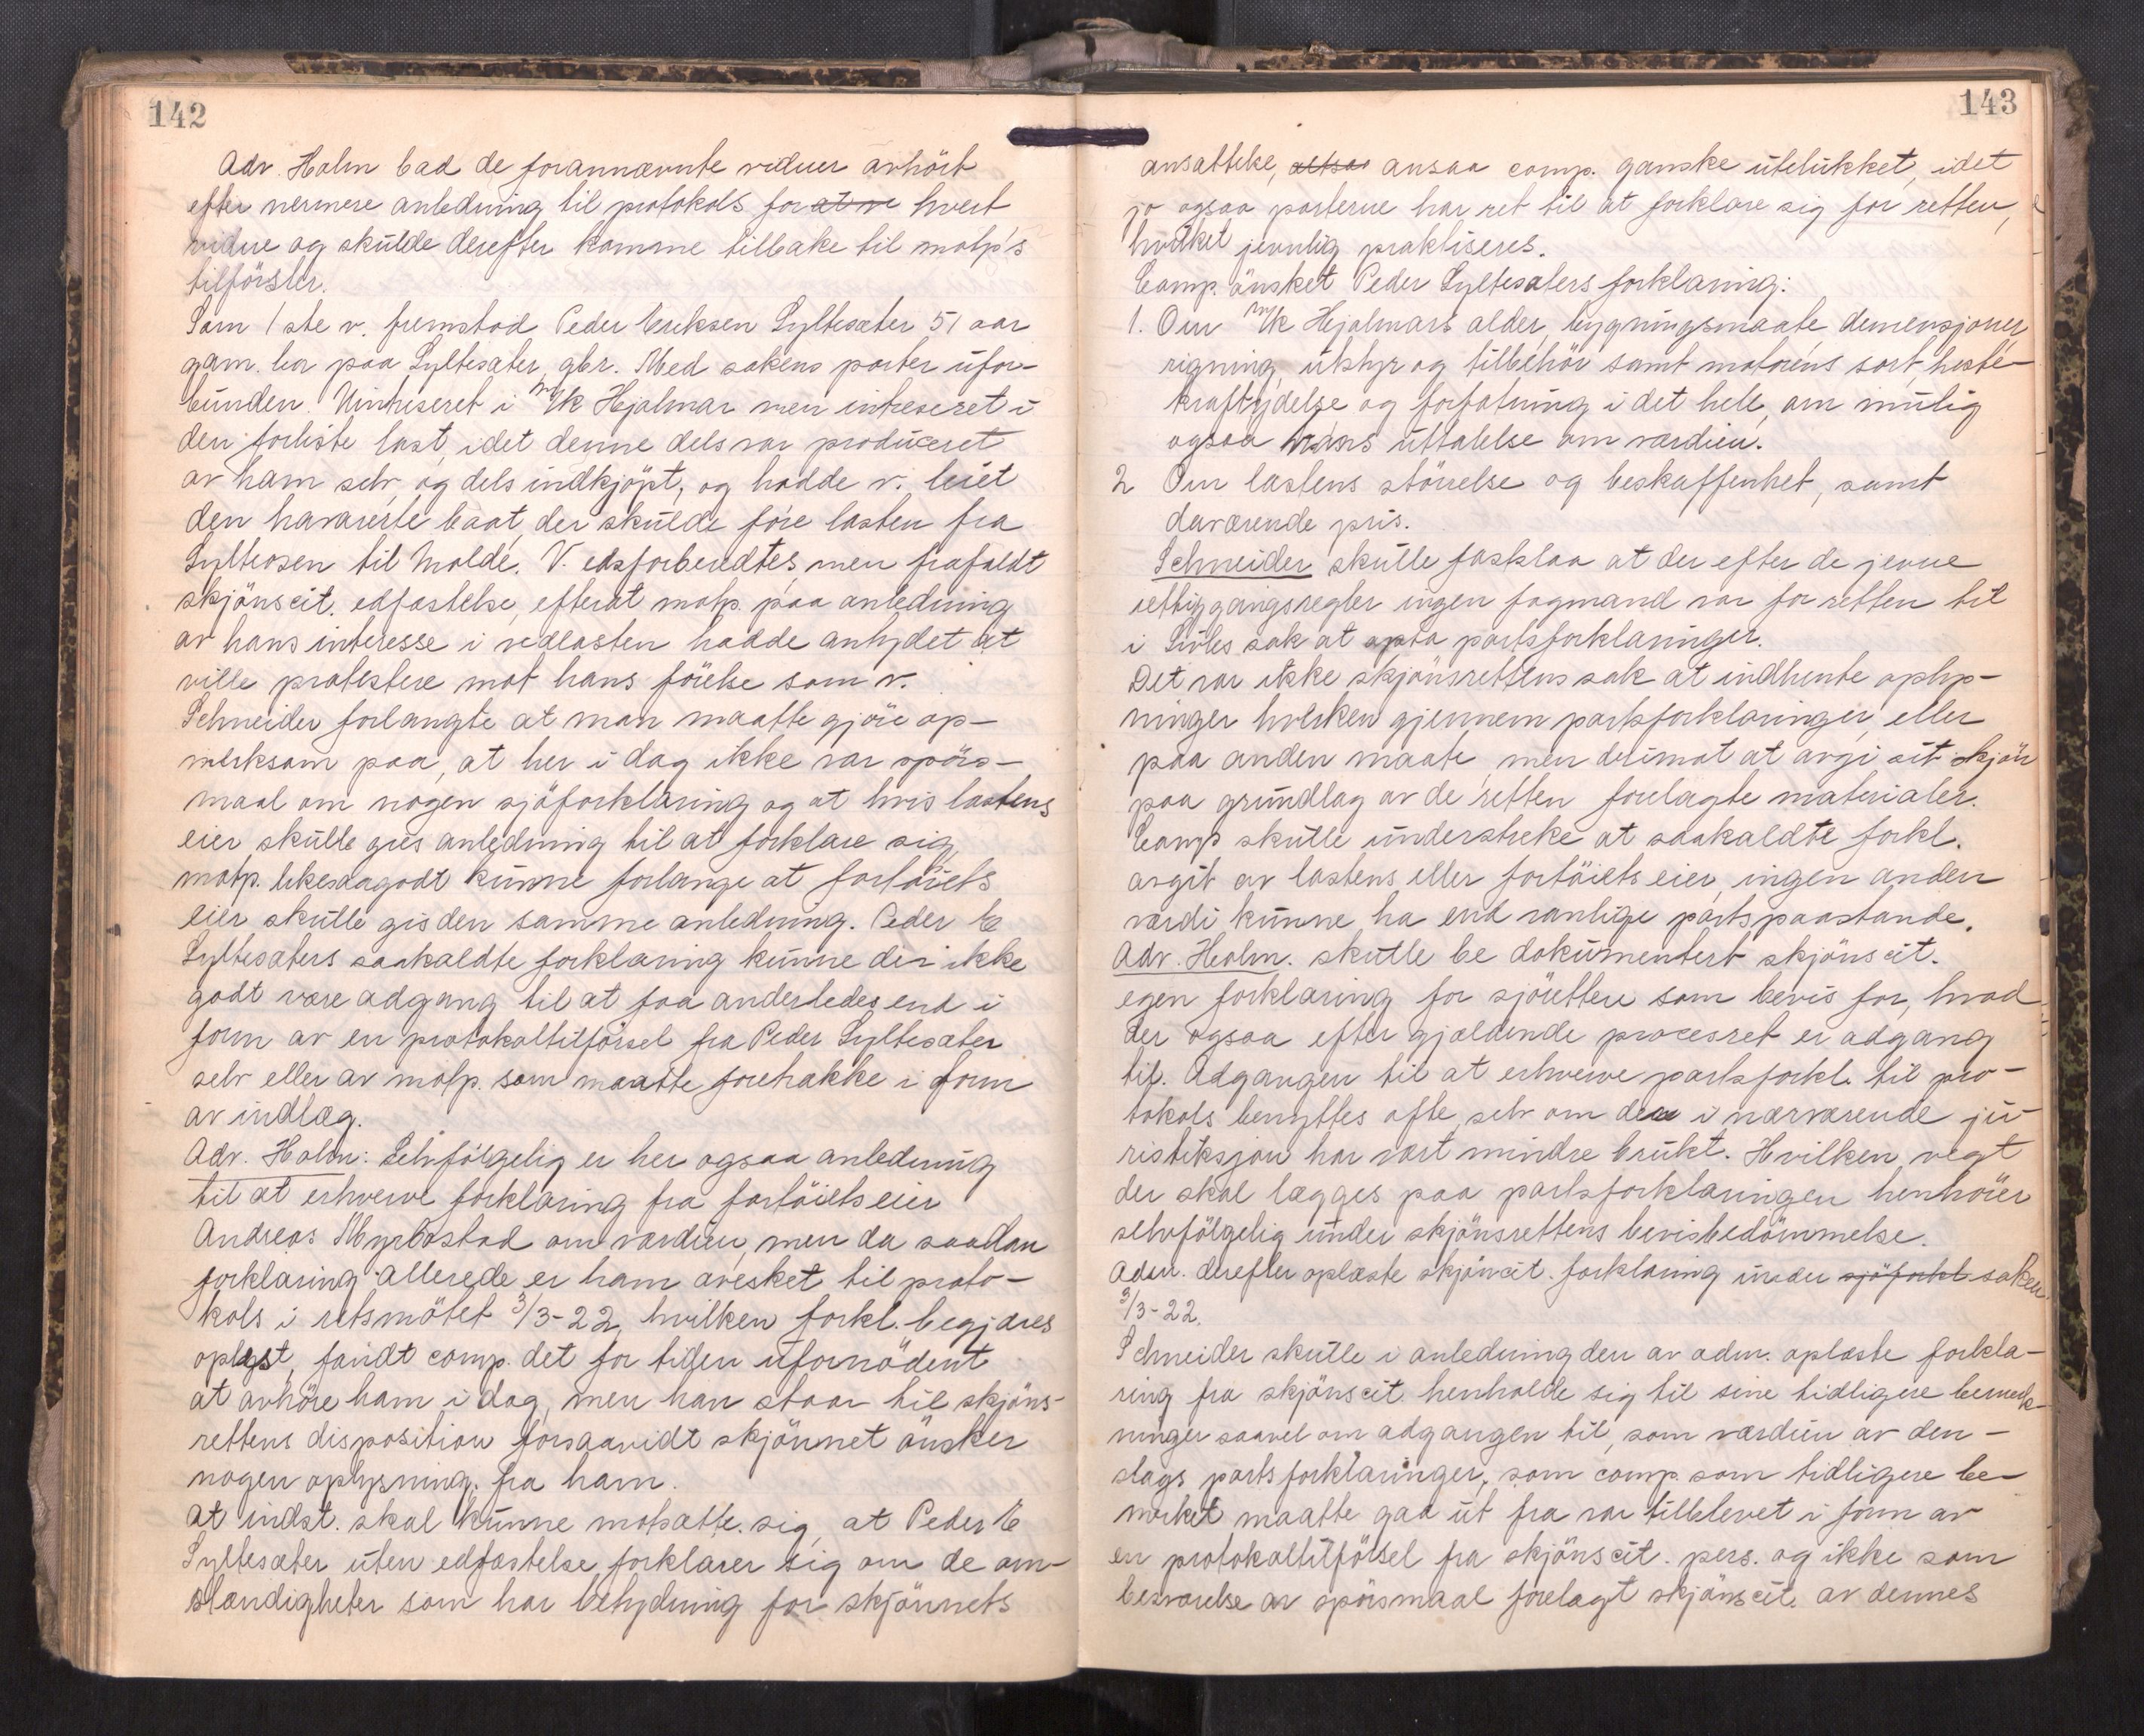 142
Adv. Holm bad de forannævnte vidner avhört
efter nermere anledning til protokols for at v hvert
vidne og skulde derefter komme tilbake til motp's
tilförsler.
Som 1ste v. fremstod Peder Eriksen Syltesæter 51 aar
gam. bor paa Syltesæter, gbr. Med sakens parter ufor-
bunden. Uintreseret i M/k Hjalmar men intreseret i
den forliste last, idet denne dels var produceret
av ham selv, og dels indkjöpt, og hadde v. leiet
den havarerte baat, der skulde före lasten fra
Sylteosen til Molde. V. edsforberedtes, men frafaldt
skjönscit. edfæstelse, efterat motp. paa anledning
av hans interesse i vedlasten hadde antydet at
ville protestere mot hans förelse som v.
Schneider forlangte at man maatte gjöre op-
merksom paa, at her i dag ikke var spörs-
maal om nogen sjöforklaring og at hvis lastens
eier skulle gies anledning til at forklare sig,
motp. likesaagodt kunne forlange at fartöiets
eier skulle gis den samme anledning. Peder E
Syltesæters saakaldte forklaring kunne der ikke
godt være adgang til at faa anderledes end i
form av en protokoltilförsel fra Peder Syltesæter
selv eller av motp. som maatte foretrække i form
av indlæg.
Adv. Holm: Selvfölgelig er her ogsaa anledning
til at erhverve forklaring fra fartöiets eier
Andreas Myrbostad om værdien, men da saadan
forklaring allerede er ham avesket til proto-
kols i retsmötet 3/3-22, hvilken forkl. begjæres
oplæst, fandt comp. det for tiden ufornödent
at avhöre ham i dag, men han staar til skjöns-
rettens disposition forsaavidt skjönnet önsker
nogen oplysning fra ham.
At indst. skal kunne motsætte sig, at Peder E
Syltesæter uten edfæstelse forklarer sig om de om-
stændigheter som har betydning for skjönnets
143
ansættelse, altsaa ansaa comp. ganske utelukket, idet
jo ogsaa parterne har ret til at forklare sig for retten,
hvilket jevnlig praktiseres.
Comp. önsket Peder Syltesæters forklaring:
1. Om M/k Hjalmars alder, bygningsmaate, demensjoner,
rigning, utstyr og tilbehör samt motorens sort, heste-
kraftydelse og forfatning i det hele, om mulig
ogsaa hans uttalelse om værdien.
2 Om lastens störrelse og beskaffenhet, samt
daværende pris.
Schneider skulle fastslaa at der efter de jevne
rettergangsregler ingen fagmand var for retten til
i Sivles sak at opta partsforklaringer.
Det var ikke skjönsrettens sak at indhente oplys-
ninger hverken gjennem partsforklaringer, eller
paa anden maate, men derimot at avgi sit skjön
paa grundlag av de retten forelagte materialer.
Comp skulle understreke at saakaldte forkl.
avgit av lastens eller fartöiets eier, ingen anden
værdi kunne ha end vanlige partspaastande.
Adv. Holm. skulle be dokumentert skjönscit.
egen forklaring for sjöretten som bevis for, hvad
der ogsaa efter gjældende procesret er adgang
til. Adgangen til at erhverve partsforkl. til pro-
tokols benyttes ofte, selv om den i nærværende ju-
ristiksjon har vært mindre brukt. Hvilken vegt
der skal lægges paa partsforklaringen henhörer
selvfölgelig under skjönsrettens bevisbedömmelse.
Adm. derefter oplæste skjönscit. forklaring under sjöforkl. saken
3/3-22.
Schneider skulle i anledning den av adm. oplæste forkla-
ring fra skjönscit. henholde sig til sine tidligere bemerk-
ninger saavel om adgangen til, som værdien av den-
slags partsforklaringer, som comp. som tidligere be-
merket maatte gaa ut fra var tilblevet i form av
en protokoltilförsel fra skjönscit. pers. og ikke som
besvarelse av spörsmaal forelagt skjönscit. av dennes